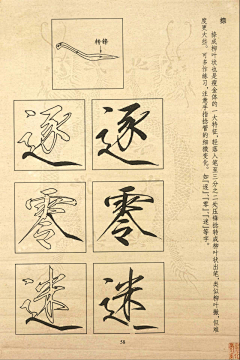 捺
捺成柳叶状也是瘦金体的一大特征，轻落入笔至三分之二处压锋捻转成柳叶状出笔，类似柳叶撇，但难
度更大些。可多作练习，注意手指捻管的细微变化。如“逐”、“零”、“迷”等字。
转锋
逐 逐
零 零
迷 迷
58